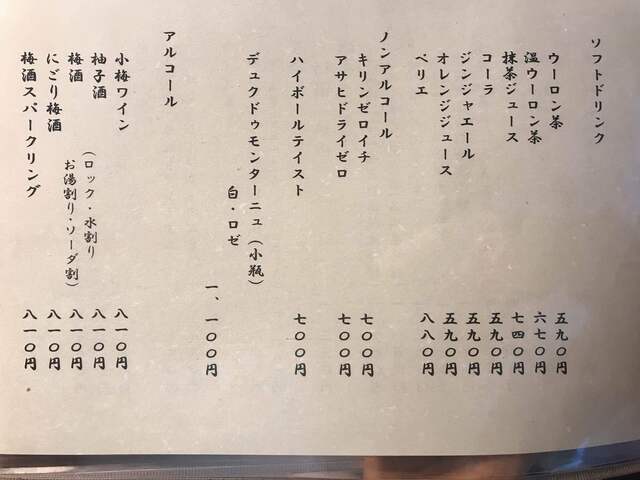 ソフトドリンク
ウーロン茶 五九〇円
温ウーロン茶 六七〇円
抹茶ジュース 七四〇円
コーラ 五九〇円
ジンジャエール 五九〇円
オレンジジュース 五九〇円
ペリエ 八八〇円
ノンアルコール
キリンゼロイチ 七〇〇円
アサヒドライゼロ 七〇〇円
ハイボールテイスト 七〇〇円
デュクドゥモンターニュ(小瓶)
白・ロゼ
一、一〇〇円
アルコール
小梅ワイン 八一〇円
柚子酒 八一〇円
梅酒 (ロック・水割り お湯割り・ソーダ割) 八一〇円
にごり梅酒 八一〇円
梅酒スパークリング 八一〇円